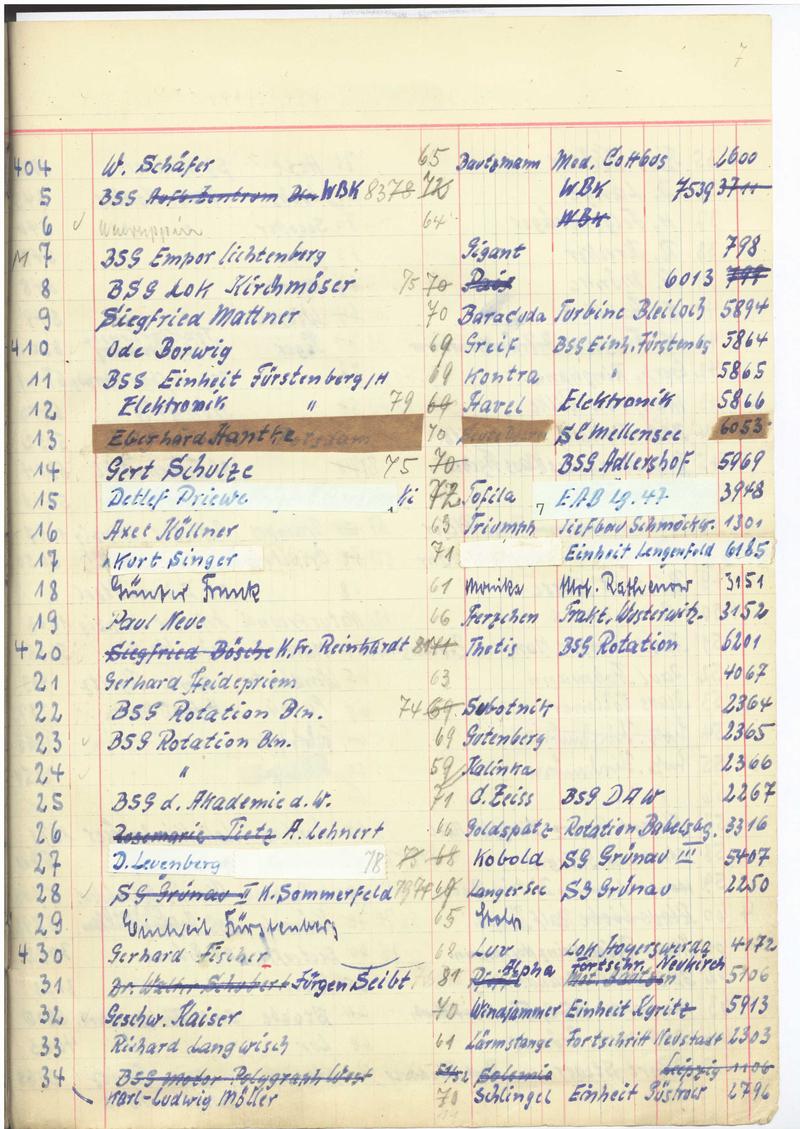 7
404 W. Schäfer 65 Med. Cottbus 2600
5 BSG Auft. Zentrum Bln. WBK 8378 72 WBK 7539 3711
6 64 WBK
M 7 BSG Empor Lichtenberg Gigant 798
8 BSG Lok Kirchmöser 75 70 6013
9 Siegfried Mattner 70 Baracuda Turbine Bleiloch 5894
410 Ode Borwig 69 Greif BSG Einh. Fürstenbg 5864
11 BSG Einheit Fürstenberg/H 69 Kontra " 5865
12 Elektronik " 79 69 Havel Elektronik 5866
13 Eberhard Hantke 70 SC Mellensee 6053
14 Gert Schulze 75 70 BSG Adlershof 5969
15 Detlef Priewe Ki 72 Tofila EAB Lg. 47 3948
16 Axel Köllner 63 Triumph Tiefbau Schmöckw. 1301
17 Kurt Singer 71 Einheit Lengenfeld 6185
18 Günter Frank 61 Monika Mot. Rathenow 3151
19 Paul Neue 66 Herzchen Trakt. Wusterwitz 3152
420 Siegfried Bösche K. Fr. Reinhardt 81 71 Thetis BSG Rotation 6201
21 Gerhard Heidepriem 63 4067
22 BSG Rotation Bln. 74 69 Subotnik 2364
23 BSG Rotation Bln. 69 Gutenberg 2365
24 " 59 Kalinka 2366
25 BSG d. Akademie d. W. 71 C. Zeiss BSG DAW 2267
26 Rosemarie Tietz A. Lehnert 66 Goldspatz Rotation Babelsbg. 3316
27 D. Levenberg 78 73 68 Kobold SG Grünau III 5407
28 SG Grünau II K. Sommerfeld 79 74 69 Langer See SG Grünau 2250
29 Einheit Fürstenberg 65
430 Gerhard Fischer 68 Luv Lok Hoyerswerda 4172
31 Dr. Walter Schubert Jürgen Seibt 81 Alpha Fortschr. Neukirch 5106
32 Geschw. Kaiser 70 Windjammer Einheit Kyritz 5913
33 Richard Langwisch 61 Lärmstange Fortschritt Neustadt 2303
34 BSG Motor Polygraph West 51/52 Leipzig 1106
Karl-Ludwig Möller 70 Schlingel Einheit Güstrow 2796